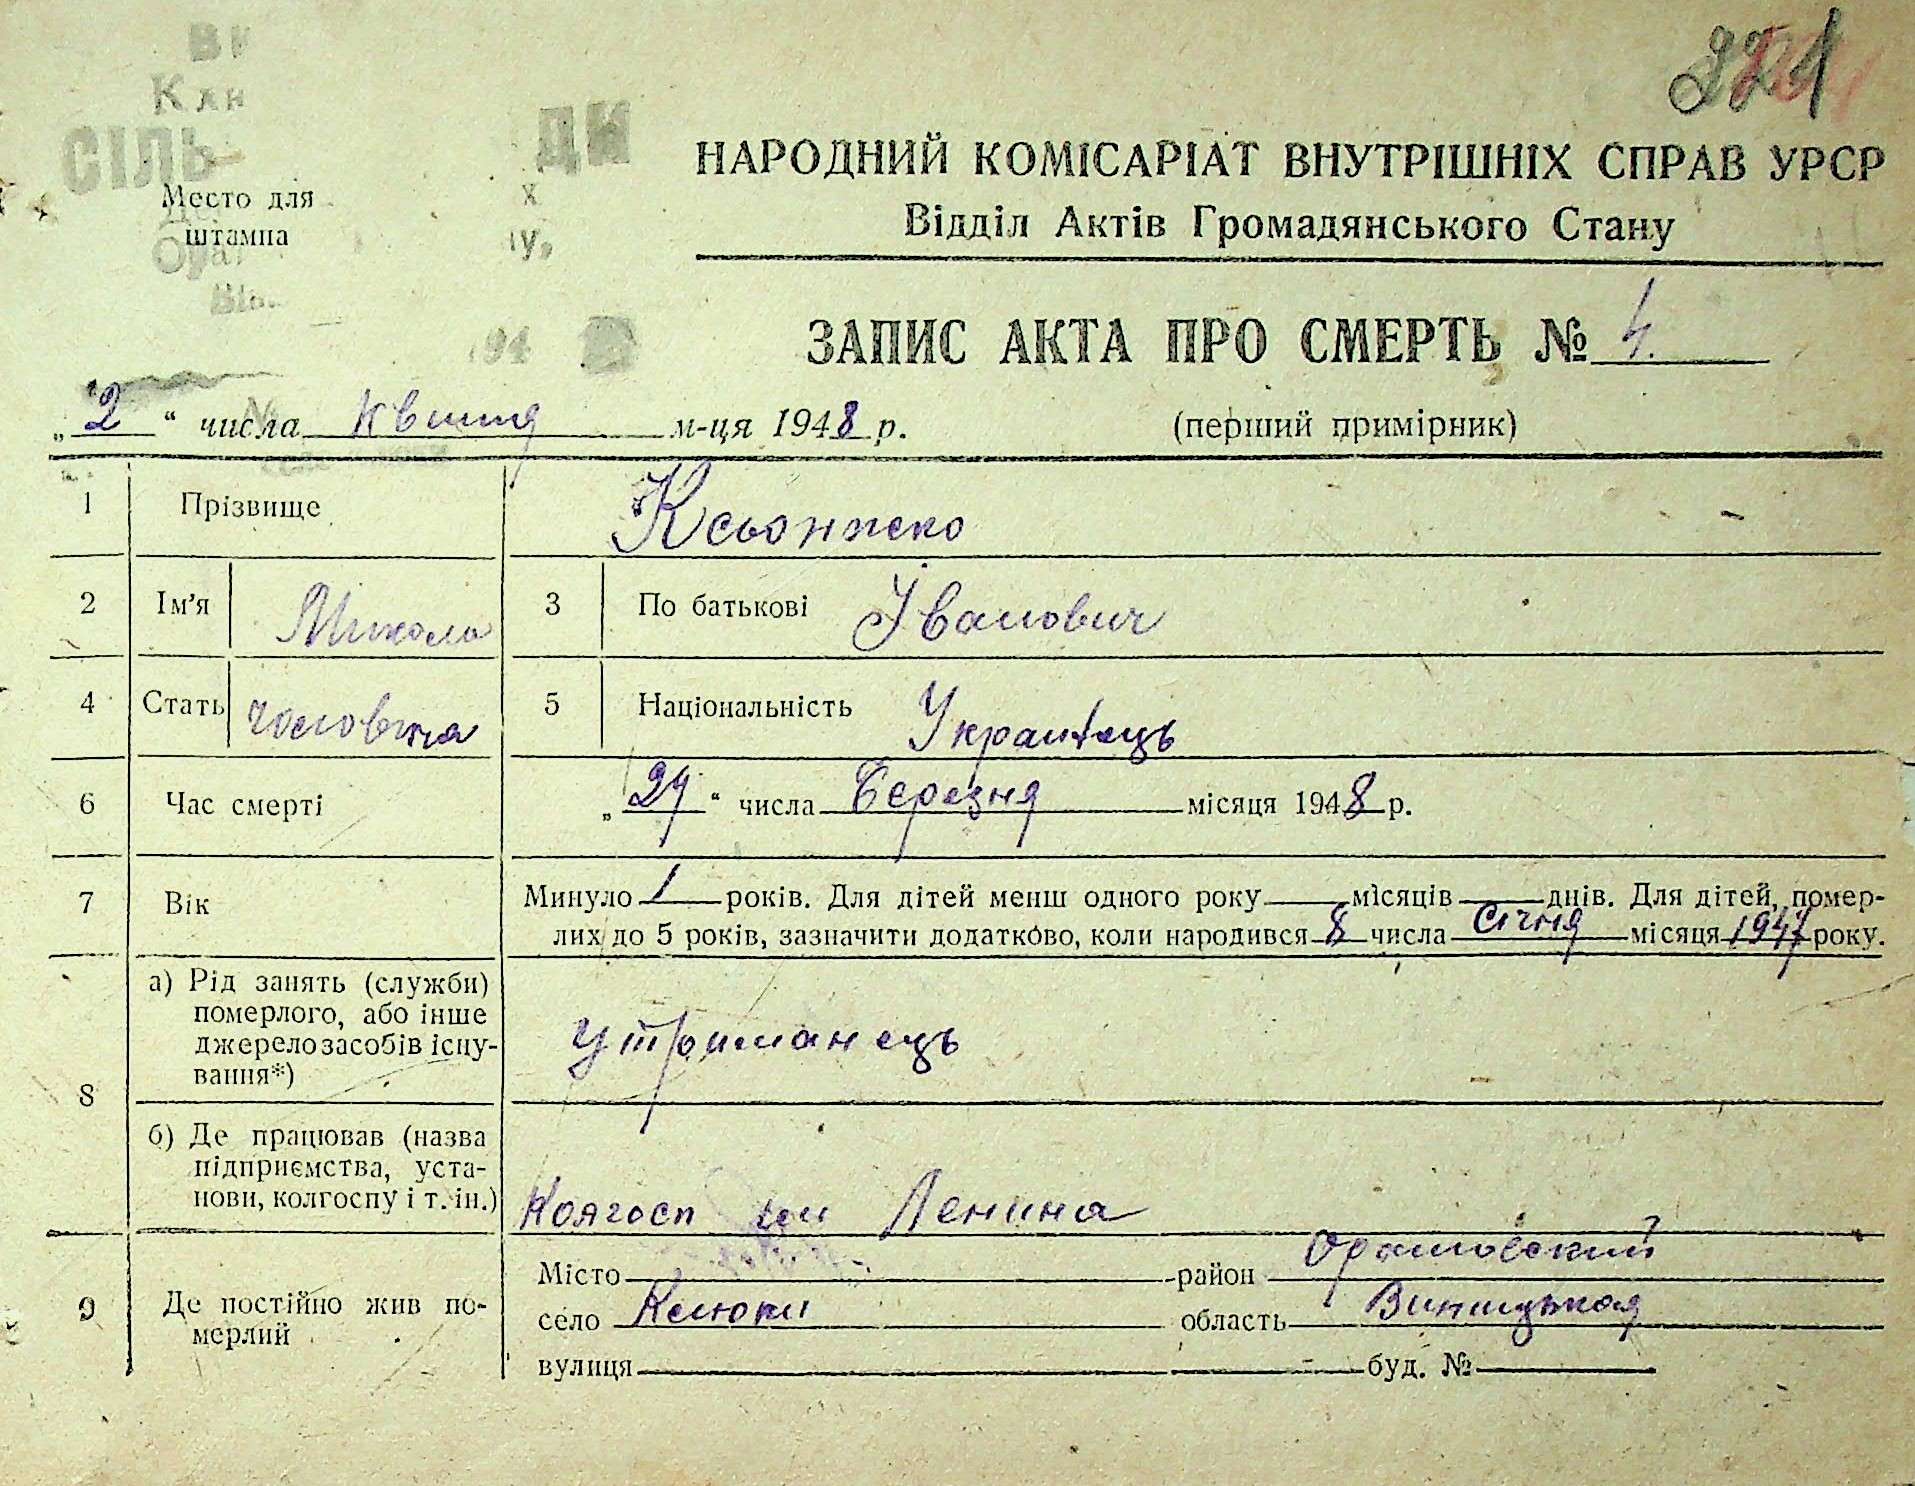 221
СІЛЬ
ДИ
Место для
штампа
НАРОДНИЙ КОМІСАРІАТ ВНУТРІШНІХ СПРАВ УРСР
Відділ Актів Громадянського Стану
ЗАПИС АКТА ПРО СМЕРТЬ № 4.
„2“ числа квитня м-ця 1948 р. (перший примірник)
1 Прізвище
2 Ім'я Микола 3 По батькові Іванович
4 Стать чоловича 5 Національність Українець
6 Час смерті „29“ числа Березня місяця 1948 р.
7 Вік Минуло 1 років. Для дітей менш одного року місяців днів. Для дітей, помер-
лих до 5 років, зазначити додатково, коли народився 8 числа Січня місяця 1947 року.
8 а) Рід занять (служби)
померлого, або інше
джерело засобів існу-
вання*) Утриманець
б) Де працював (назва
підприємства, уста-
нови, колгоспу і т. ін.) Колгосп им Ленина
9 Де постійно жив по-
мерлий
Місто район
село область Виницькая
вулиця буд. №